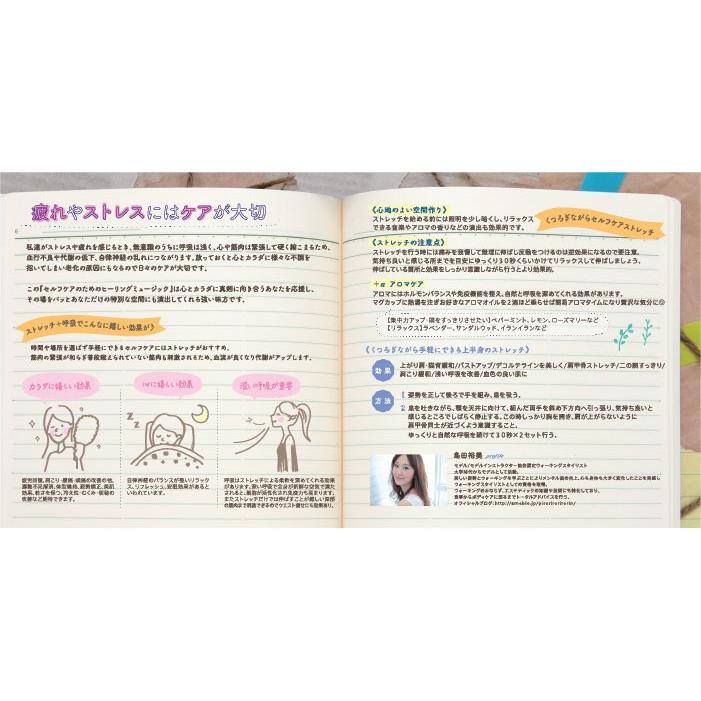 疲れやストレスにはケアが大切
私達がストレスや疲れを感じるとき、無意識のうちに呼吸は浅く、心や筋肉は緊張して硬く縮こまるため、
血行不良や代謝の低下、自律神経の乱れにつながります。放っておくと心とカラダに様々な不調を
招いてしまい老化の原因にもなるので日々のケアが大切です。
この『セルフケアのためのヒーリングミュージック』は心とカラダに真剣に向き合うあなたを応援し、
その場をパッとあなただけの特別な空間にも演出してくれる強い味方です。
ストレッチ+呼吸でこんなに嬉しい効果が♪
時間や場所を選ばず手軽にできるセルフケアにはストレッチがおすすめ。
筋肉の緊張が和らぎ普段鍛えられていない筋肉も刺激されるため、血流が良くなり代謝がアップします。
カラダに嬉しい効果
心に嬉しい効果
深い呼吸が重要
疲労回復、肩こり・腰痛・頭痛の改善の他、
運動不足解消、体型維持、姿勢矯正、美肌
効果、若さを保つ、冷え性・むくみ・便秘の
改善など期待できます。
自律神経のバランスが整いリラック
ス、リフレッシュ、安眠効果があると
いわれています。
呼吸はストレッチによる柔軟を深めてくれる効果
があります。深い呼吸で全身が新鮮な空気で満た
されると、細胞が活性化され免疫力も高まります。
またストレッチだけでは伸ばすことが難しい深部
の筋肉まで刺激できるのでウエスト痩せにも効果あり。
《心地のよい空間作り》
ストレッチを始める前には照明を少し暗くし、リラックス
できる音楽やアロマの香りなどの演出も効果的です。
くつろぎながらセルフケアストレッチ
《ストレッチの注意点》
ストレッチを行う時には痛みを我慢して無理に伸ばし反動をつけるのは逆効果になるので要注意。
気持ち良いと感じる所までを目安にゆっくり30秒くらいかけてリラックスして伸ばしましょう。
伸ばしている箇所と効果をしっかり意識しながら行うとより効果的。
+α アロマケア
アロマにはホルモンバランスや免疫機能を整え、自然と呼吸を深めてくれる効果があります。
マグカップに熱湯を注ぎお好きなアロマオイルを2滴ほど垂らせば簡易アロマタイムになり贅沢な気分に
【集中力アップ・頭をすっきりさせたい】ペパーミント、レモン、ローズマリーなど
【リラックス】ラベンダー、サンダルウッド、イランイランなど
《くつろぎながら手軽にできる上半身のストレッチ》
効果
上がり肩・猫背緩和/バストアップ/デコルテラインを美しく/肩甲骨ストレッチ/二の腕すっきり/
肩こり緩和/浅い呼吸を改善/血色の良い肌に
方法
姿勢を正して後ろで手を組み、息を吸う。
息を吐きながら、顎を天井に向けて、組んだ両手を斜め下方向へ引っ張り、気持ち良いと
感じるところでしばらく静止する。この時しっかり胸を開き、肩が上がらないように
肩甲骨同士が近づくよう意識すること。
ゆっくりと自然な呼吸を続けて30秒×2セット行う。
島田裕美 profile
モデル/モデルインストラクター/協会認定ウォーキングスタイリスト
大学時代からモデルとして活動。
ウォーキングスタイリストとしての資格を取得。
ウォーキングのみならず、エステティックの知識や技術にも特化しており、
食事からボディケアに至るまでトータルアドバイスを行う。